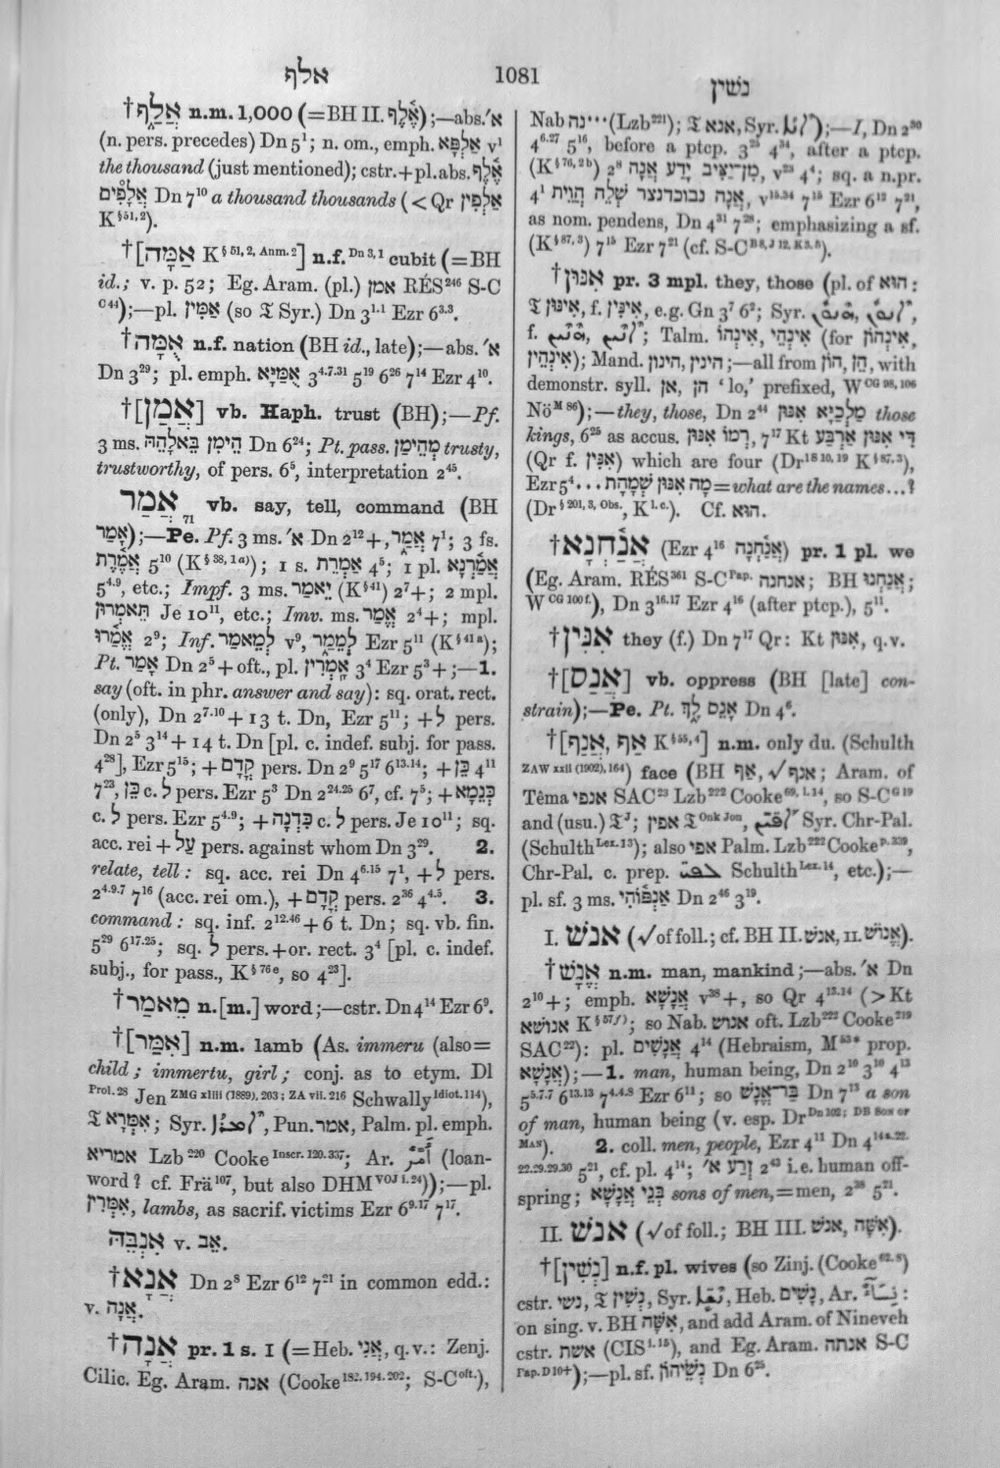 אלף
1081
נשין
†אֲלַף n.m. 1,000 (=BH II. אֶ֫לֶף);—abs. א׳
(n. pers. precedes) Dn 5¹; n. om., emph. אַלְפָּא v¹
the thousand (just mentioned); cstr.+pl.abs. אֶ֫לֶף
אַלְפִים Dn 7¹⁰ a thousand thousands (< Qr אַלְפִין
K§51,2).
†[אַמָּה K§ 51, 2, Anm. 2] n.f. Dn 3, 1 cubit (=BH
id.; v. p. 52; Eg. Aram. (pl.) אמן RÉS²⁴⁶ S-C
C⁴⁴);—pl. אַמִּין (so 𝔗 Syr.) Dn 3¹·¹ Ezr 6³·³.
†אֻמָּה n.f. nation (BH id., late);—abs. א׳
Dn 3²⁹; pl. emph. אֻמַּיָּא 3⁴·⁷·³¹ 5¹⁹ 6²⁶ 7¹⁴ Ezr 4¹⁰.
†[אֲמַן] vb. Haph. trust (BH);—Pf.
3 ms. הֵימִן בֵּאלָהֵהּ Dn 6²⁴; Pt. pass. מְהֵימַן trusty,
trustworthy, of pers. 6⁵, interpretation 2⁴⁵.
אֲמַר 71 vb. say, tell, command (BH
אָמַר);—Pe. Pf. 3 ms. א׳ Dn 2¹²+, אֲמַר 7¹; 3 fs.
אֲמֶ֫רֶת 5¹⁰ (K§ 38, 1a)); 1 s. אַמְרֵת 4⁵; 1 pl. אֲמַ֫רְנָא
5⁴·⁹, etc.; Impf. 3 ms. יֵאמַר (K§41) 2⁷+; 2 mpl.
תֵּאמְרוּן Je 10¹¹, etc.; Imv. ms. אֱמַר 2⁴+; mpl.
אֱמַ֫רוּ 2⁹; Inf. לְמֵאמַר v⁹, לְמֵמַר Ezr 5¹¹ (K§41a);
Pt. אָמַר Dn 2⁵+oft., pl. אָמְרִין 3⁴ Ezr 5³+;—1.
say (oft. in phr. answer and say): sq. orat. rect.
(only), Dn 2⁷·¹⁰+13 t. Dn, Ezr 5¹¹; +לְ pers.
Dn 2⁵ 3¹⁴+14 t. Dn [pl. c. indef. subj. for pass.
4²⁸], Ezr 5¹⁵; +קֳדָם pers. Dn 2⁹ 5¹⁷ 6¹³·¹⁴; +כֵּן 4¹¹
7²³, כֵּן c. לְ pers. Ezr 5³ Dn 2²⁴·²⁵ 6⁷, cf. 7⁵; +כְּנֵמָא
c. לְ pers. Ezr 5⁴·⁹; +כִּדְנָה c. לְ pers. Je 10¹¹; sq.
acc. rei+עַל pers. against whom Dn 3²⁹. 2.
relate, tell: sq. acc. rei Dn 4⁶·¹⁵ 7¹, +לְ pers.
2⁴·⁹·⁷ 7¹⁶ (acc. rei om.), +קֳדָם pers. 2³⁶ 4⁴·⁵. 3.
command: sq. inf. 2¹²·⁴⁶+6 t. Dn; sq. vb. fin.
5²⁹ 6¹⁷·²⁵; sq. לְ pers.+or. rect. 3⁴ [pl. c. indef.
subj., for pass., K§ 76e, so 4²³].
†מֵאמַר n.[m.] word;—cstr. Dn 4¹⁴ Ezr 6⁹.
†[אִמַּר] n.m. lamb (As. immeru (also=
child; immertu, girl; conj. as to etym. Dl
Prol. 28 Jen ZMG xliii (1889), 203; ZA vii. 216 Schwally Idiot. 114),
𝔗 אִמְּרָא; Syr. Pun. אמר, Palm. pl. emph.
אמריא Lzb²²⁰ Cooke Inscr. 120. 337; Ar. (loan-
word? cf. Frä¹⁰⁷, but also DHM VOJ i. 24));—pl.
אִמְּרִין, lambs, as sacrif. victims Ezr 6⁹·¹⁷ 7¹⁷.
אִנְבֵּהּ v. אֵב.
†אֲנָא Dn 2⁸ Ezr 6¹² 7²¹ in common edd.:
v. אֲנָה.
†אֲנָה pr. 1 s. I (=Heb. אֲנִי, q.v.: Zenj.
Cilic. Eg. Aram. אנה (Cooke 182. 194. 202; S-C oft.),
Nab אנה··· (Lzb²²¹); 𝔗 אנא, Syr. );—I, Dn 2³⁰
4⁶·²⁷ 5¹⁶, before a ptcp. 3²⁵ 4³⁴, after a ptcp.
(K§76, 2b) 2⁸ מִן־יַצִּיב יָדַע אֲנָה, v²³ 4⁴; sq. a n.pr.
4¹ אֲנָה נבוכדנצר שְׁלֵה הֲוֵית, v¹⁵·³⁴ 7¹⁵ Ezr 6¹² 7²¹,
as nom. pendens, Dn 4³¹ 7²⁸; emphasizing a sf.
(K§87, 3) 7¹⁵ Ezr 7²¹ (cf. S-C).
†אִנּוּן pr. 3 mpl. they, those (pl. of הוּא:
𝔗 אִינּוּן, f. אִינִּין, e.g. Gn 3⁷ 6²; Syr.
f. ; Talm. אִינְהוּ, אִינְהִי (for אִינְהוֹן,
אִינְהֵין); Mand. הינין, הינון;—all from הֵן, הוֹן, with
demonstr. syll. אן, הן 'lo,' prefixed, W CG 98, 106
Nö M 86);—they, those, Dn 2⁴⁴ מַלְכַיָּא אִנּוּן those
kings, 6²⁵ as accus. רְמוֹ אִנּוּן, 7¹⁷ Kt דִּי אִנּוּן אַרְבַּע
(Qr f. אִנִּין) which are four (Dr 18 10. 19 K§87. 3),
Ezr 5⁴... מָה אִנּוּן שְׁמָהָת=what are the names...?
(Dr§ 201, 3, Obs., K l. c.). Cf. הוּא.
†אֲנַ֫חְנָא (Ezr 4¹⁶ אֲנַ֫חְנָה) pr. 1 pl. we
(Eg. Aram. RÉS³⁶¹ S-C Pap. אנחנה; BH אֲנַחְנוּ;
W CG 100 f.), Dn 3¹⁶·¹⁷ Ezr 4¹⁶ (after ptcp.), 5¹¹.
†אִנִּין they (f.) Dn 7¹⁷ Qr: Kt אִנּוּן, q.v.
†[אֲנַס] vb. oppress (BH [late] con-
strain);—Pe. Pt. אָנֵס לָךְ Dn 4⁶.
†[אֲנַף, אַף K§55, 4] n.m. only du. (Schulth
ZAW xxii (1902), 164) face (BH אַף, √אנף; Aram. of
Têma אנפי SAC²³ Lzb²²² Cooke 69. l. 14, so S-C G 19
and (usu.) 𝔗 J; אפין 𝔗 Onk Jon, Syr. Chr-Pal.
(Schulth Lex. 13); also אפי Palm. Lzb²²² Cooke p. 339,
Chr-Pal. c. prep. Schulth Lex. 14, etc.);—
pl. sf. 3 ms. אַנְפּ֫וֹהִי Dn 2⁴⁶ 3¹⁹.
I. אנשׁ (√of foll.; cf. BH II. אנשׁ, II. אֱנוֹשׁ).
†אֱנָשׁ n.m. man, mankind;—abs. א׳ Dn
2¹⁰+; emph. אֲנָשָׁא v³⁸+, so Qr 4¹³·¹⁴ (>Kt
אנושא K§57f)); so Nab. אנוש oft. Lzb²²² Cooke²¹⁹
SAC²²): pl. אֲנָשִׁים 4¹⁴ (Hebraism, M 53* prop.
אֲנָשָׁא);—1. man, human being, Dn 2¹⁰ 3¹⁰ 4¹³
5⁵·⁷·⁷ 6¹³·¹³ 7⁴·⁴·⁸ Ezr 6¹¹; so בַּר־אֱנָשׁ Dn 7¹³ a son
of man, human being (v. esp. Dr Dn 102; DB Son of
Man). 2. coll. men, people, Ezr 4¹¹ Dn 4
22.29.29.30 5²¹, cf. pl. 4¹⁴; זְרַע א׳ 2⁴³ i.e. human off-
spring; בְּנֵי אֲנָשָׁא sons of men,=men, 2³⁸ 5²¹.
II. אנשׁ (√of foll.; BH III. אנשׁ, אִשָּׁה).
†[נְשִׁין] n.f. pl. wives (so Zinj. (Cooke 62. 8)
cstr. נשי, 𝔗 נְשִׁין, Syr. , Heb. נָשִׁים, Ar. :
on sing. v. BH אִשָּׁה, and add Aram. of Nineveh
cstr. אשת (CIS), and Eg. Aram. אנתה S-C
Pap. D 10+);—pl. sf. נְשֵׁיהוֹן Dn 6²⁵.